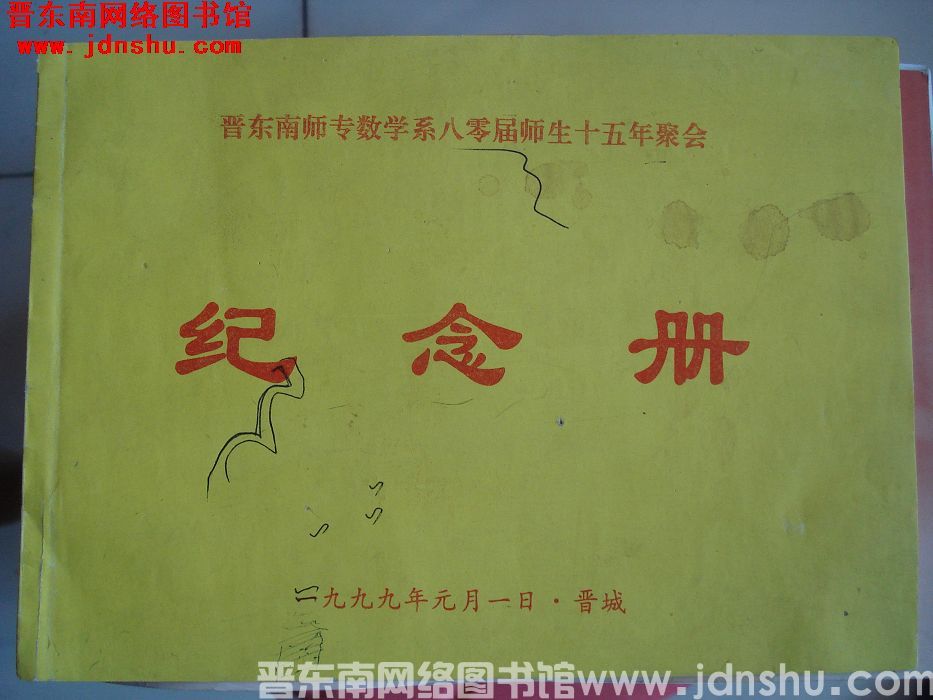 晋东南网络图书馆
www.jdnshu.com
晋东南师专数学系八零届师生十五年聚会
纪念册
一九九九年元月一日·晋城
晋东南网络图书馆www.jdnshu.com